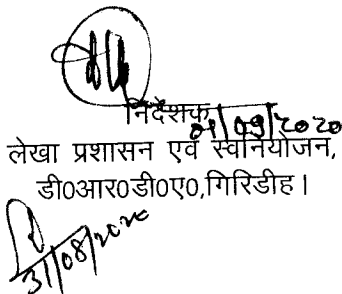 निदेशक
01/09/2020
लेखा प्रशासन एवं स्वनियोजन,
डी0आर0डी0ए0,गिरिडीह।
31/08/2020